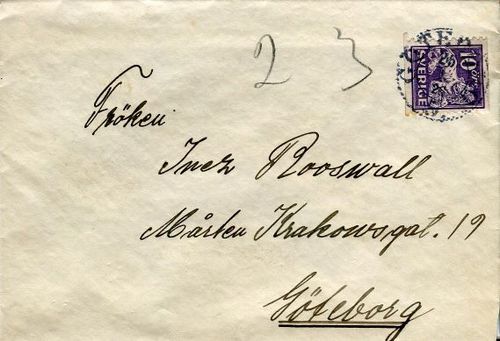 2 3
10 öre
SVERIGE
Fröken
Inez Rooswall
Mårten Krakowsgat. 19
Göteborg